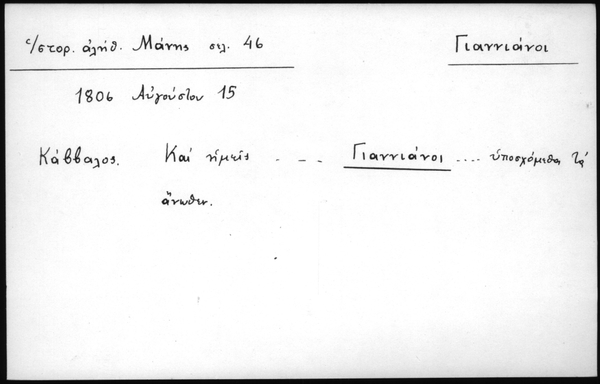 Ἱστορ. ἀλήθ. Μάνης σελ. 46 Γιαννιάνοι
1806 Αὐγούστου 15
Κάββαλος. Καὶ ἡμεῖς - - - Γιαννιάνοι .... ὑποσχόμεθα τὰ
ἄνωθεν.